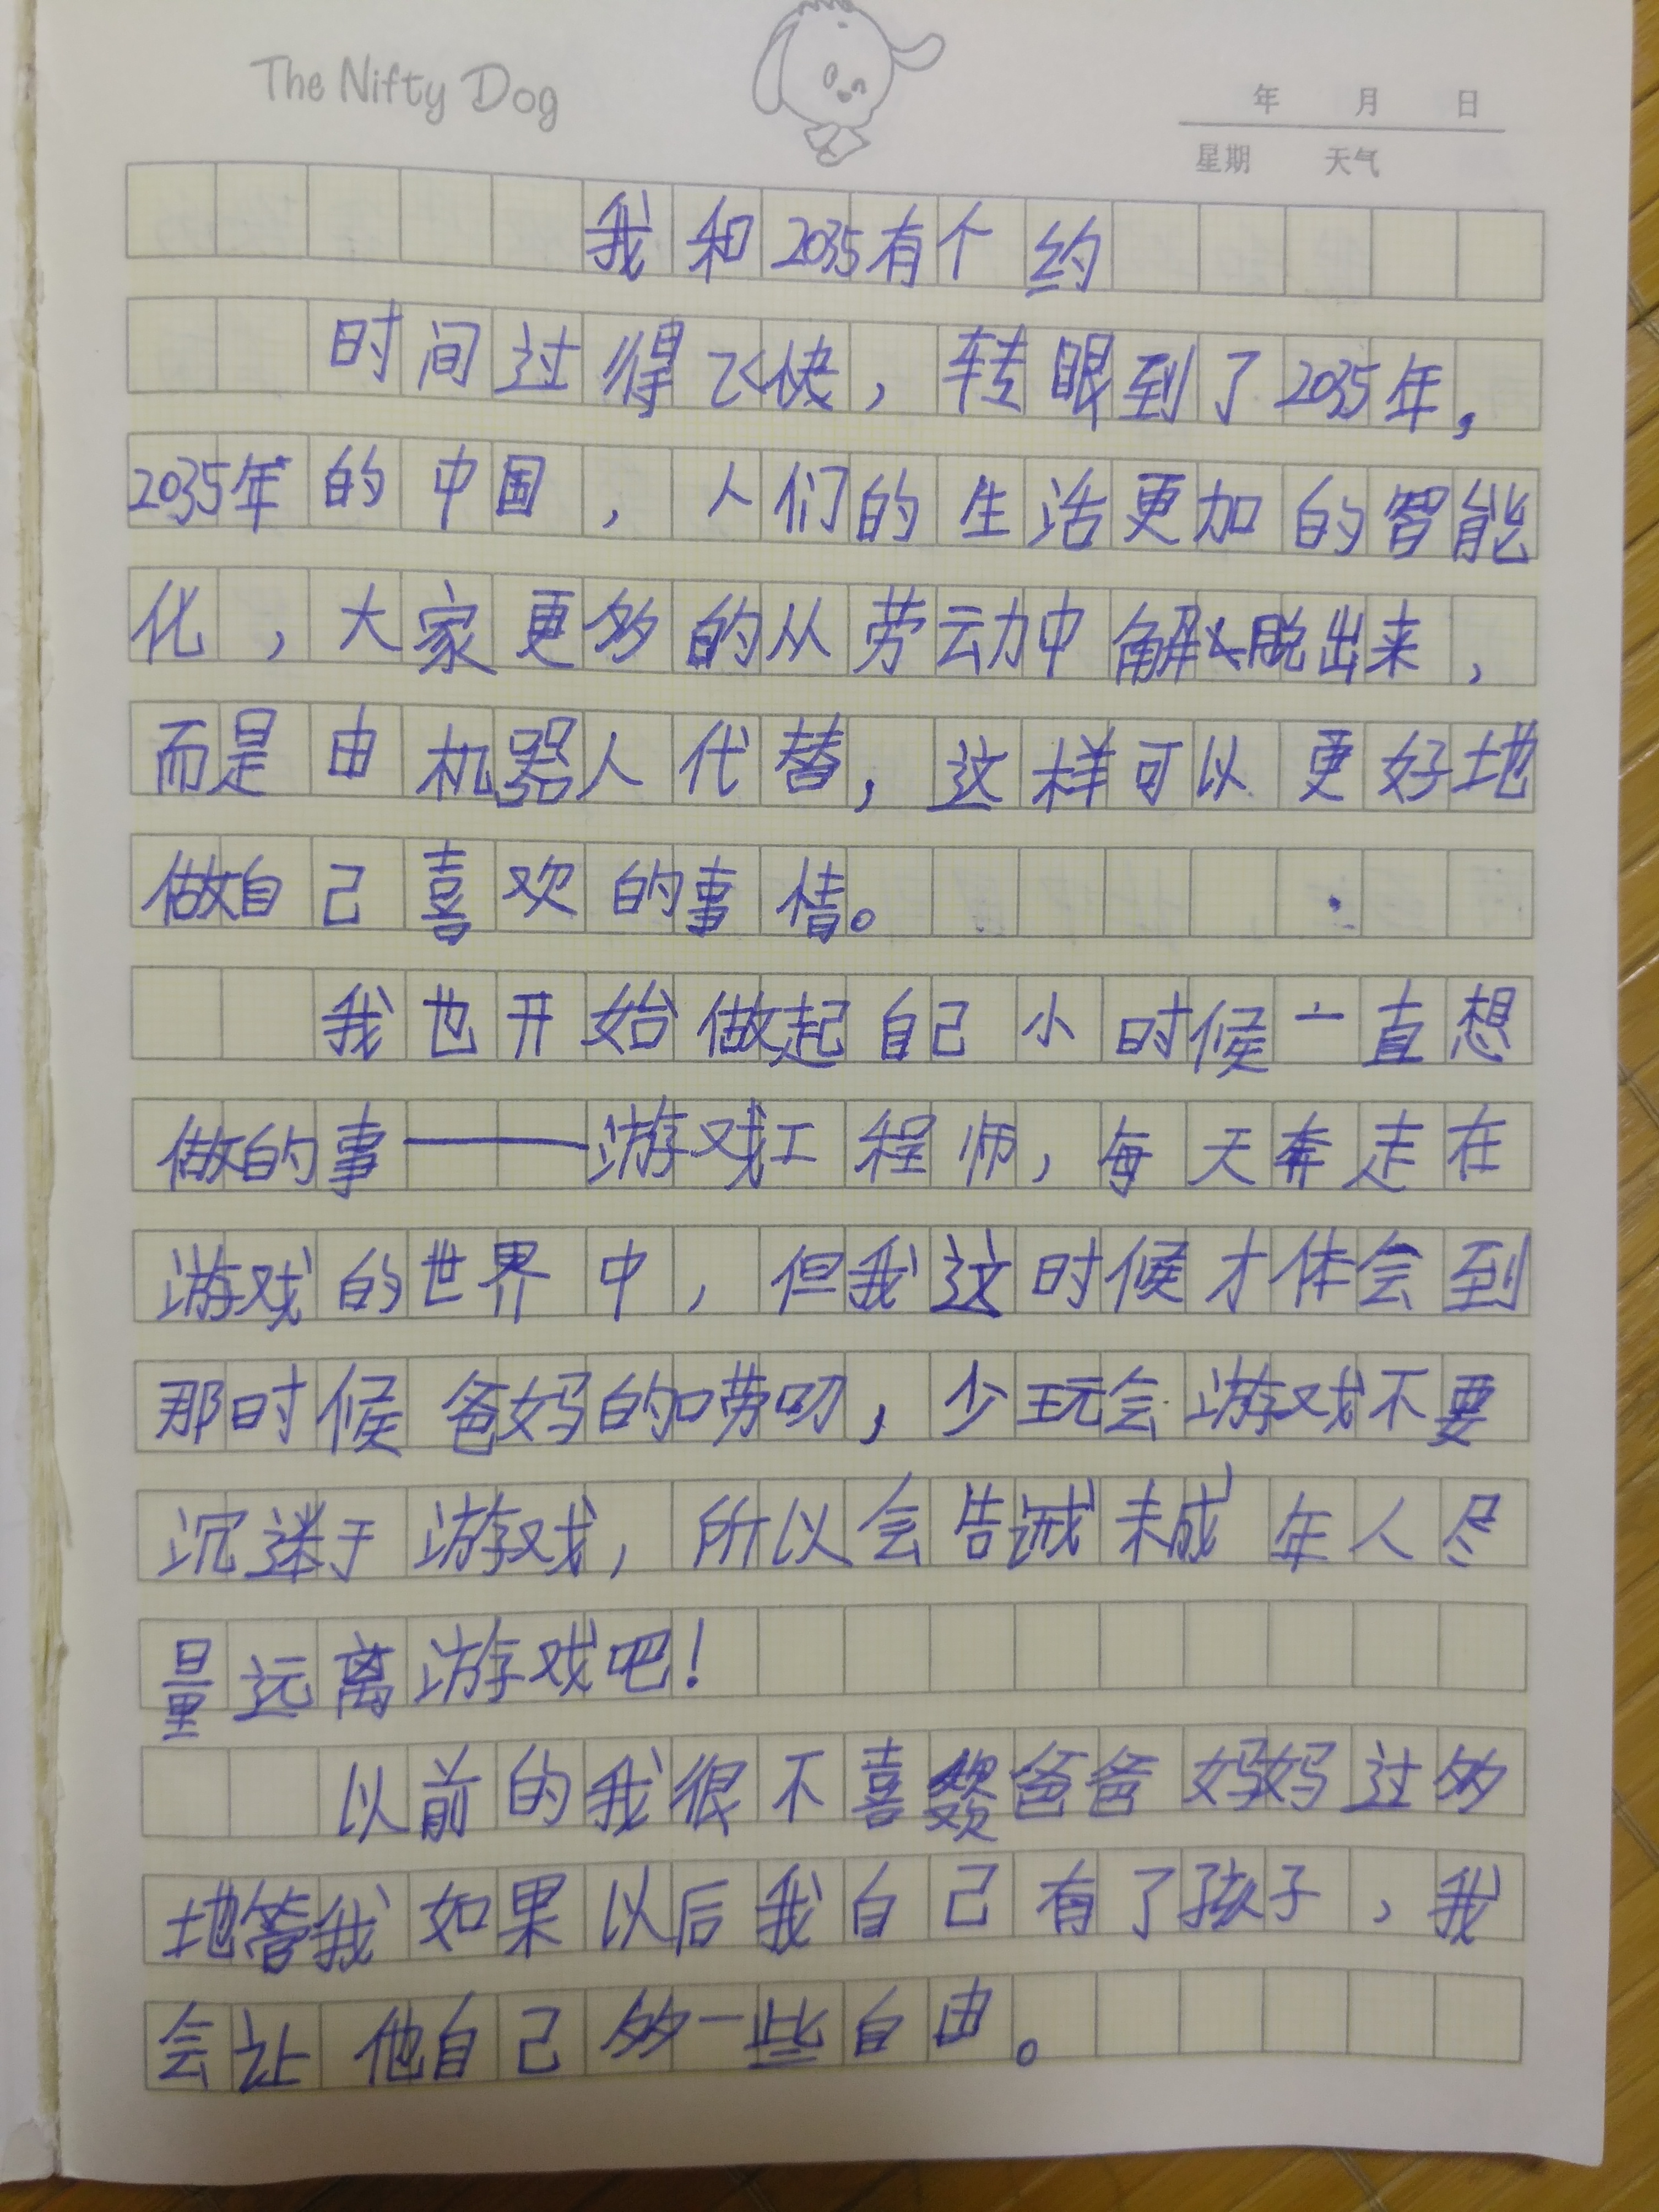 The Nifty Dog
年 月 日
星期 天气
我和2035有个约
时间过得飞快，转眼到了2035年，
2035年的中国，人们的生活更加的智能
化，大家更多的从劳动中解脱出来，
而是由机器人代替，这样可以更好地
做自己喜欢的事情。
我也开始做起自己小时候一直想
做的事——游戏工程师，每天奔走在
游戏的世界中，但我这时候才体会到
那时候爸妈的唠叨，少玩会游戏不要
沉迷于游戏，所以会告诫未成年人尽
量远离游戏吧！
以前的我很不喜爸爸妈妈过多
地管我如果以后我自己有了孩子，我
会让他自己多一些自由。